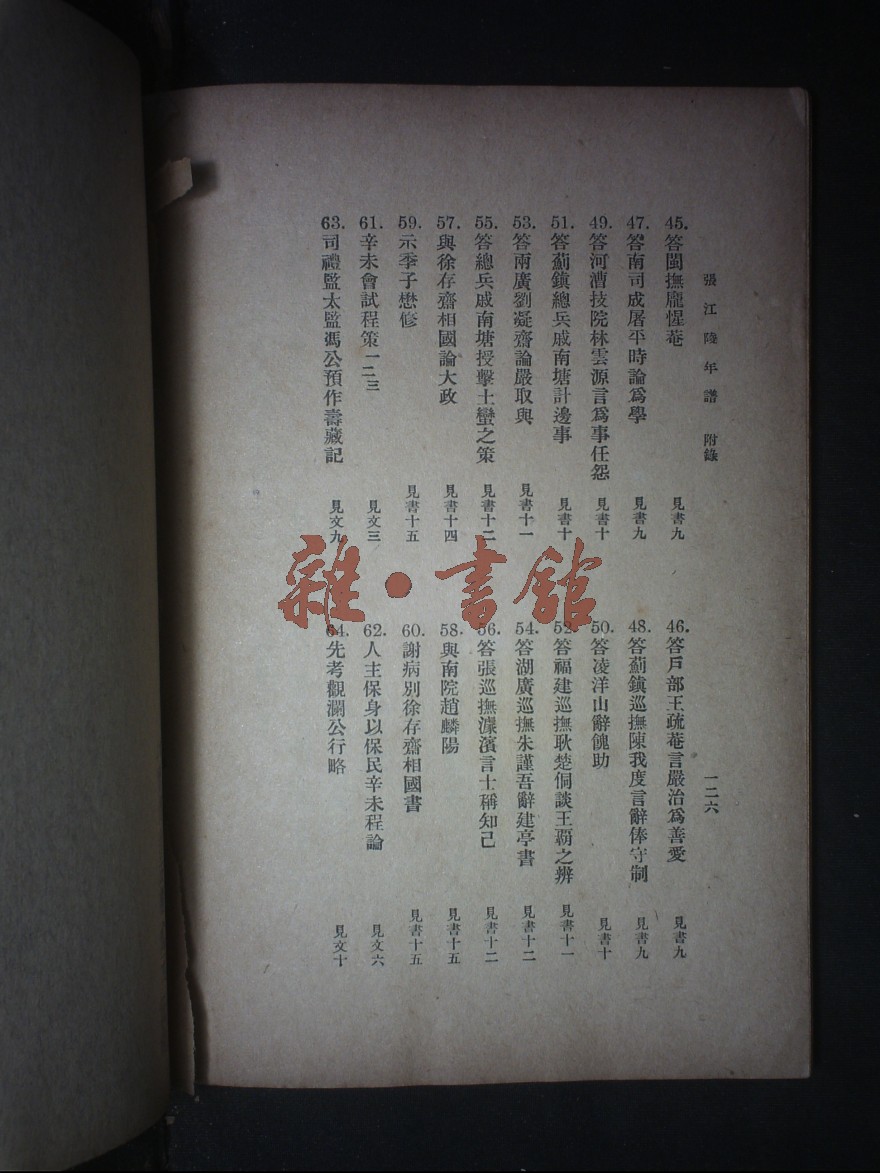 張江陵年譜 附錄
一二六
45. 答閩撫龐惺菴 見書九
46. 答戶部王疏菴言嚴治爲善愛 見書九
47. 答南司成屠平時論爲學 見書九
48. 答薊鎭巡撫陳我度言辭俸守制 見書九
49. 答河漕技院林雲源言爲事任怨 見書十
50. 答凌洋山辭餽助 見書十
51. 答薊鎭總兵戚南塘計邊事 見書十
52. 答福建巡撫耿楚侗談王覇之辨 見書十一
53. 答兩廣劉凝齋論嚴取與 見書十一
54. 答湖廣巡撫朱謹吾辭建亭書 見書十二
55. 答總兵戚南塘授擊土蠻之策 見書十二
56. 答張巡撫濂濱言士稱知己 見書十二
57. 與徐存齋相國論大政 見書十四
58. 與南院趙麟陽 見書十五
59. 示季子懋修 見書十五
60. 謝病別徐存齋相國書 見書十五
61. 辛未會試程策一二三 見文三
62. 人主保身以保民辛未程論 見文六
63. 司禮監太監馮公預作壽藏記 見文九
64. 先考觀瀾公行略 見文十
雜·書館